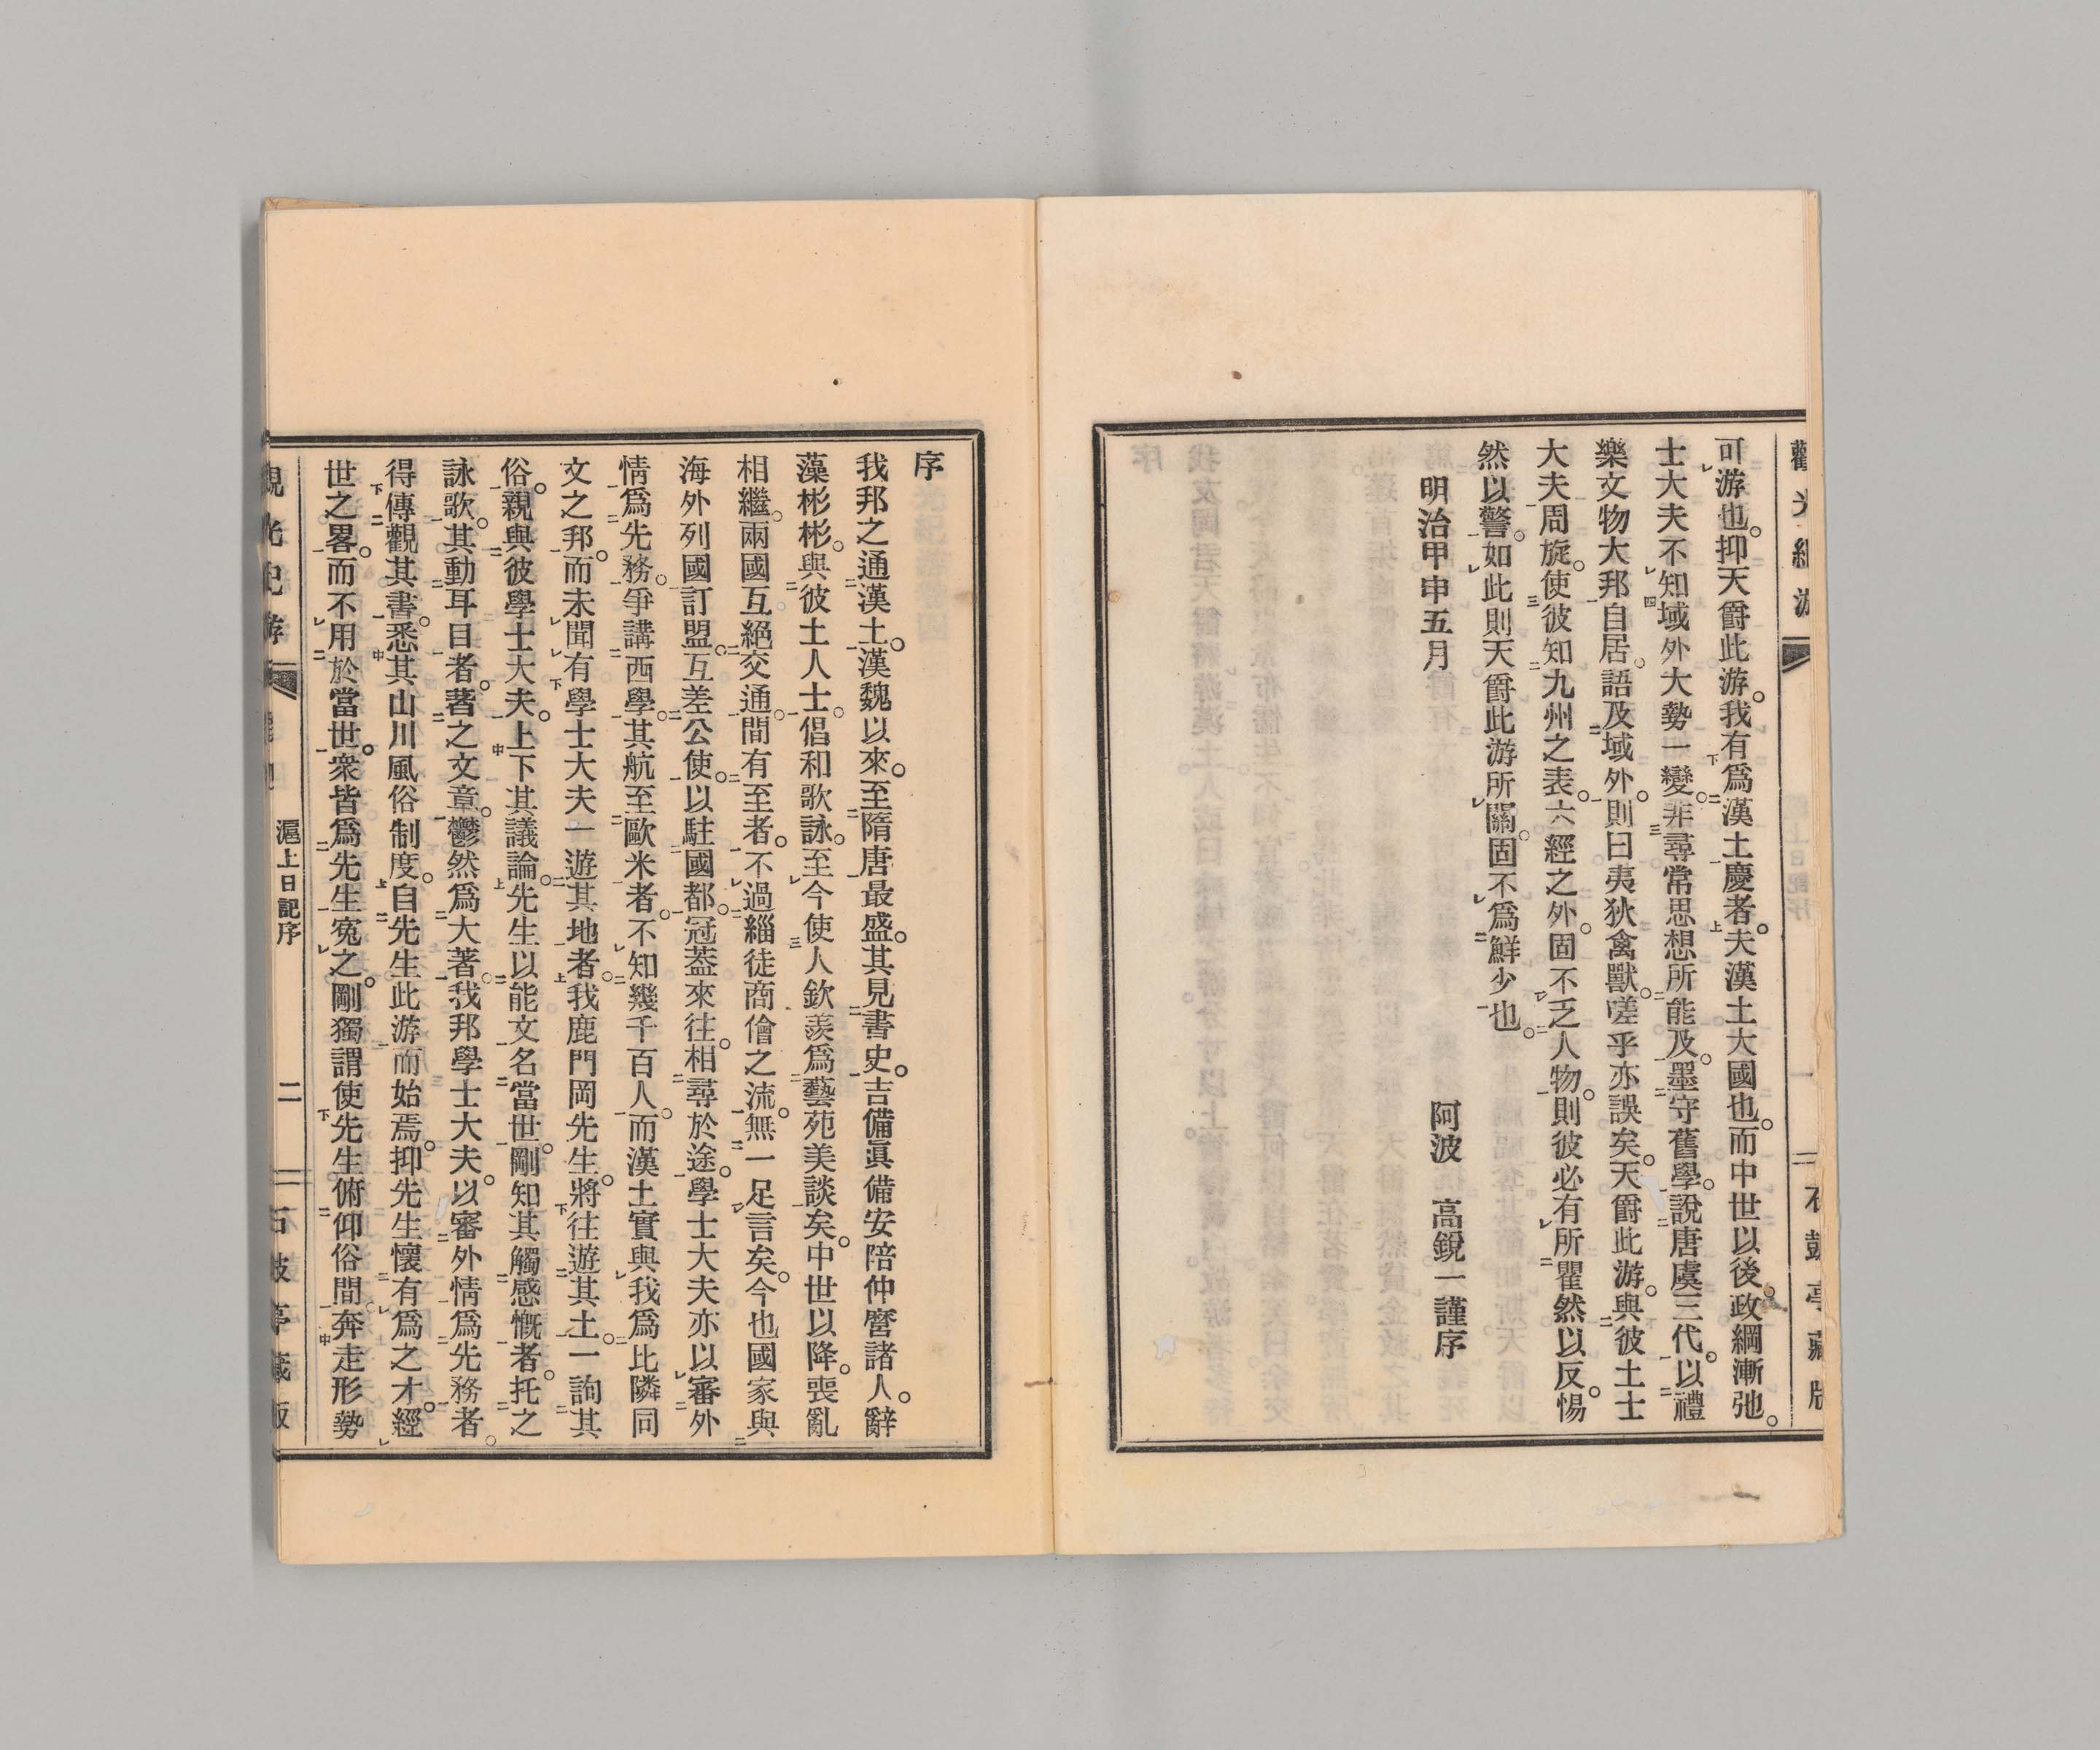 可游也。抑天爵此游。我有爲漢土慶者。夫漢土大國也。而中世以後。政綱漸弛。
士大夫不知域外大勢一變。非尋常思想所能及。墨守舊學。說唐虞三代。以禮
樂文物大邦自居。語及域外。則曰夷狄禽獸。嗟乎亦誤矣。天爵此游。與彼土士
大夫周旋。使彼知九州之表。六經之外。固不乏人物。則彼必有所瞿然以反。惕
然以警。如此則天爵此游所關。固不爲鮮少也。
明治甲申五月
阿波　高銳一謹序
序
我邦之通漢土。漢魏以來。至隋唐最盛。其見書史。吉備眞備安陪仲麿諸人。辭
藻彬彬。與彼土人士。倡和歌詠。至今使人欽羨爲藝苑美談矣。中世以降。喪亂
相繼。兩國互絕交通。間有至者。不過緇徒商儈之流。無一足言矣。今也國家與
海外列國訂盟。互差公使。以駐國都。冠蓋來往。相尋於途。學士大夫亦以審外
情爲先務。爭講西學。其航至歐米者。不知幾千百人。而漢土實與我爲比隣同
文之邦。而未聞有學士大夫一遊其地者。我鹿門岡先生。將往遊其土。一詢其
俗。親與彼學士大夫。上下其議論。先生以能文名當世。剛知其觸感慨者。托之
詠歌。其動耳目者。著之文章。鬱然爲大著。我邦學士大夫。以審外情爲先務者。
得傳觀其書。悉其山川風俗制度。自先生此游而始焉。抑先生懷有爲之才。經
世之畧。而不用於當世。衆皆爲先生寃之。剛獨謂使先生俯仰俗間。奔走形勢
滬上日記序
二